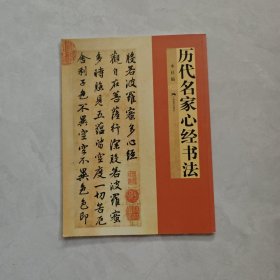 历代名家心经书法
般若波罗蜜多心经
观自在菩萨行深般若波罗蜜
多时照见五蕴皆空度一切苦厄
舍利子色不异空空不异色色即